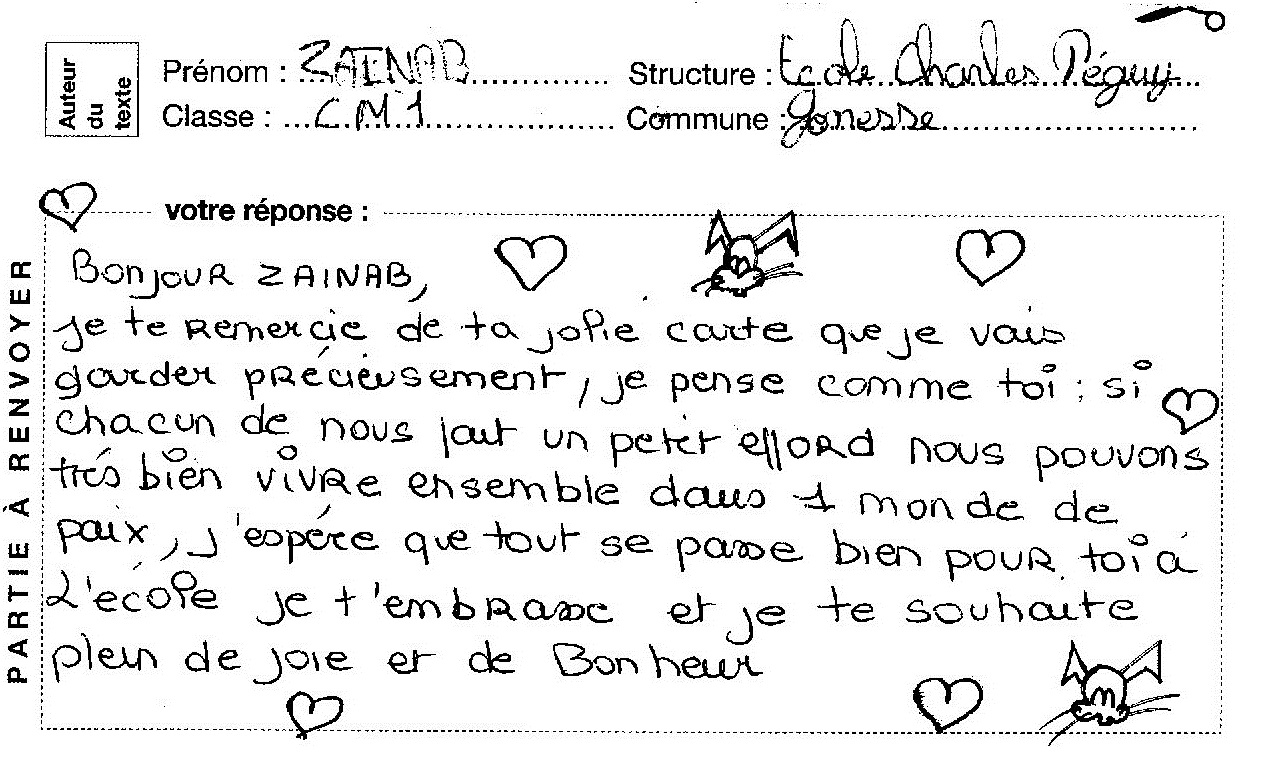 Auteur du texte
Prénom : ZAINAB Structure : Ecole Charles Péguy
Classe : CM1 Commune : Gonesse
votre réponse :
PARTIE À RENVOYER
Bonjour ZAINAB,
je te remercie de ta jolie carte que je vais
garder précieusement, je pense comme toi : si
chacun de nous fait un petit efford nous pouvons
trés bien vivre ensemble dans 1 monde de
paix, j'espére que tout se passe bien pour toi á
l'école je t'embrasse et je te souhaite
plein de joie et de Bonheur